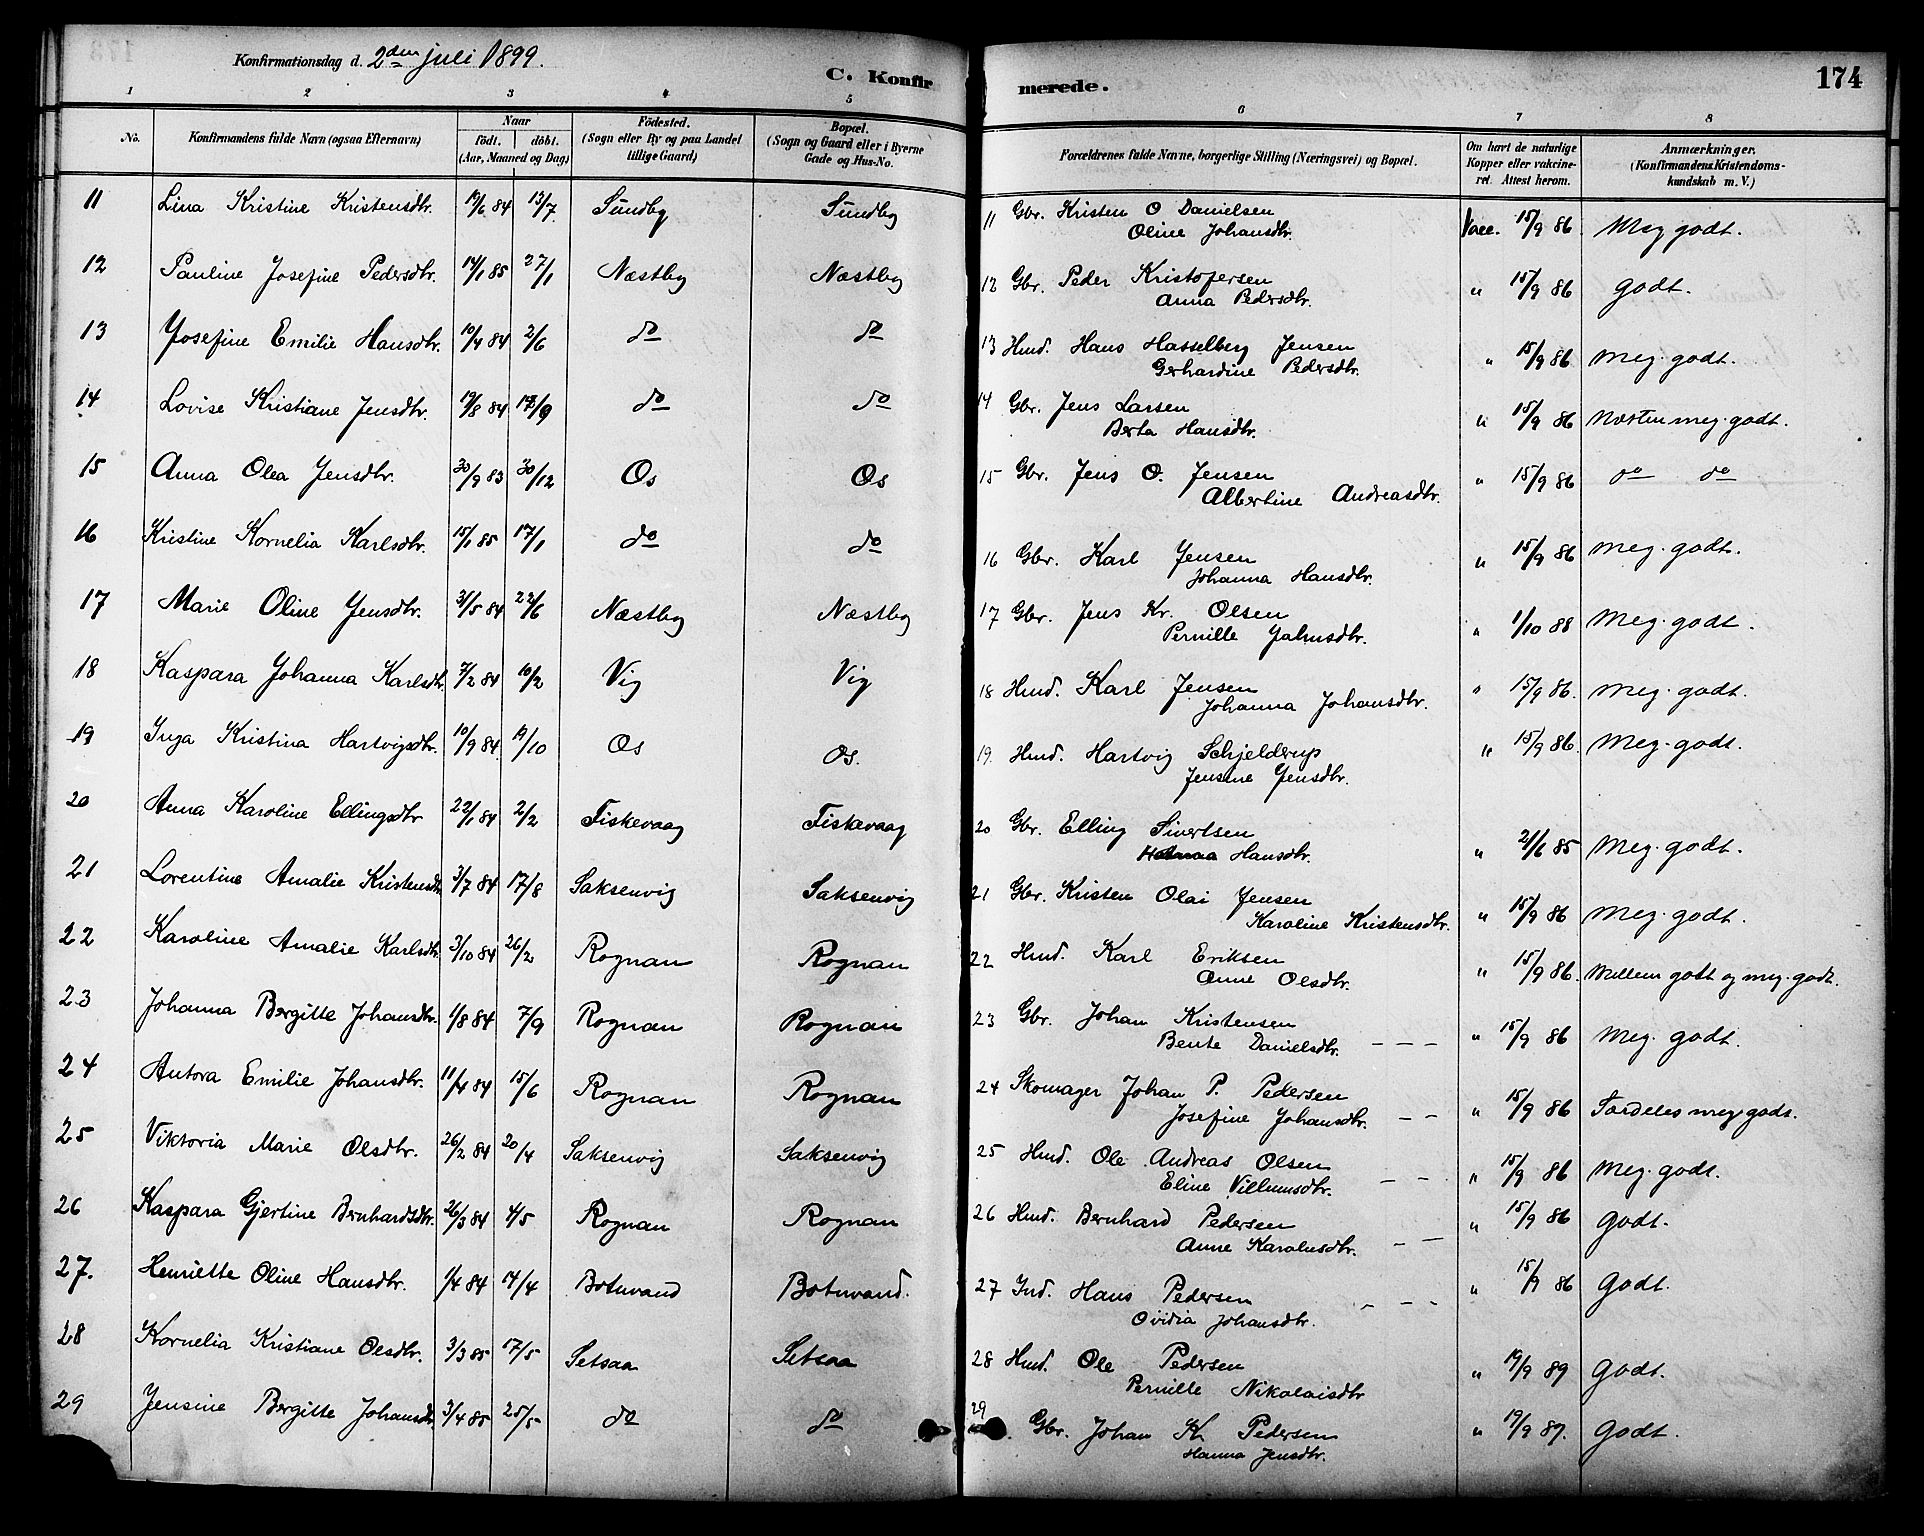 Konfirmationsdag d. 2den juli 1899.
C. Konfirmerede.
174
1 2 3 4 5 6 7 8
No.
Konfirmandens fulde Navn (ogsaa Efternavn)
Naar
födt. döbt.
(Aar, Maaned og Dag)
Födested.
(Sogn eller By og paa Landet
tillige Gaard)
Bopæl.
(Sogn og Gaard eller i Byerne
Gade og Hus-No.
Forældrenes fulde Navne, borgerlige Stilling (Næringsvei) og Bopæl.
Om havt de naturlige
Kopper eller vakcine-
ret. Attest herom.
Anmærkninger.
(Konfirmandens Kristendoms-
kundskab m. V.)
11 Lina Kristine Kristensdtr. 19/6 84 13/7 Sundby Sundby 11 Gbr. Kristen O Danielsen Vacc. 15/9 86 Meg godt.
Oline Johansdtr.
12 Pauline Josefine Pedersdtr. 14/1 85 27/1 Næstby Næstby 12 Gbr. Peder Kristofersen " 15/9 86 godt.
Anna Pedersdtr.
13 Josefine Emilie Hansdtr. 10/4 84 2/6 do do 13 Hmd. Hans Hasselberg Jensen " 15/9 86 meg. godt.
Gerhardine Pedersdtr.
14 Lovise Kristiane Jensdtr. 19/8 84 /9 do do 14 Gbr. Jens Larsen " 15/9 86 næsten meg. godt.
Berta Hansdtr.
15 Anna Olea Jensdtr. 30/9 83 30/12 Os Os 15 Gbr. Jens O. Jensen " 15/9 86 do do
Albertine Andreasdtr.
16 Kristine Kornelia Karlsdtr. 15/1 85 17/1 do do 16 Gbr. Karl Jensen " 15/9 86 meg. godt.
Johanna Hansdtr.
17 Marie Oline Jensdtr. 31/5 84 22/6 Næstby Næstby 17 Gbr. Jens Kr. Olsen " 1/10 88 Meg. godt.
Pernille Jahnsdtr.
18 Kaspara Johanna Karlsdtr. 7/2 84 10/2 Vig Vig 18 Hmd. Karl Jensen " 15/9 86. meg. godt.
Johanna Johansdtr.
19 Inga Kristina Hartvigsdtr. 10/9 84 19/10 Os Os. 19. Hmd. Hartvig Schjelderup " 15/9 86. Meg. godt.
Jensine Jensdtr.
20 Anna Karoline Ellingsdtr 22/1 84 2/2 Fiskevaag Fiskevaag 20 Gbr. Elling Sivertsen " 21/6 85 Meg. godt.
Hansdtr.
21 Lorentine Amalie Kristensdtr. 3/7 84 17/8 Saksenvig Saksenvig 21 Gbr. Kristen Olai Jensen " 15/9 86 meg. godt.
Karoline Kristensdtr.
22 Karoline Amalie Karlsdtr. 3/10 84 26/2 Rognan Rognan 22 Hmd. Karl Eriksen " 15/9 86. Mellem godt og meg. godt.
Anne Olsdtr.
23 Johanna Bergitte Johansdtr. 1/8 84 7/9 Rognan Rognan 23 Gbr. Johan Kristensen " 15/9 86 Meg. godt.
Bente Danielsdtr. – – –
24 Antora Emilie Johansdtr. 11/4 84 15/6 Rognan Rognan 24 Skomager Johan P. Pedersen " 15/9 86 Særdeles meg. godt.
Josefine Johansdtr. – –
25 Viktoria Marie Olsdtr. 26/2 84 20/4 Saksenvig Saksenvig 25 Hmd. Ole Andreas Olsen " 15/9 86 meg. godt.
Eline Villumsdtr. – –
26 Kaspara Gjertine Bernhardsdtr. 26/3 84 4/5 Rognan Rognan 26 Hmd. Bernhard Pedersen " 15/9 86 godt.
Anne Karolusdtr. – –
27. Henriette Oline Hansdtr. 1/4 84 14/4 Botnvand Botnvand. 27 Ind. Hans Pedersen – – – " 15/9 86 Godt.
Ovidia Johansdtr.
28 Kornelia Kristiane Olsdtr. 3/3 85 17/5 Setsaa Setsaa 28 Hmd. Ole Pedersen " 19/9 89 Godt.
Pernille Nikolaisdtr
29 Jensine Bergitte Johansdtr. 3/4 85 25/5 do do 29 Gbr. Johan K. Pedersen " 19/9 87. Godt.
Hanna Jensdtr.